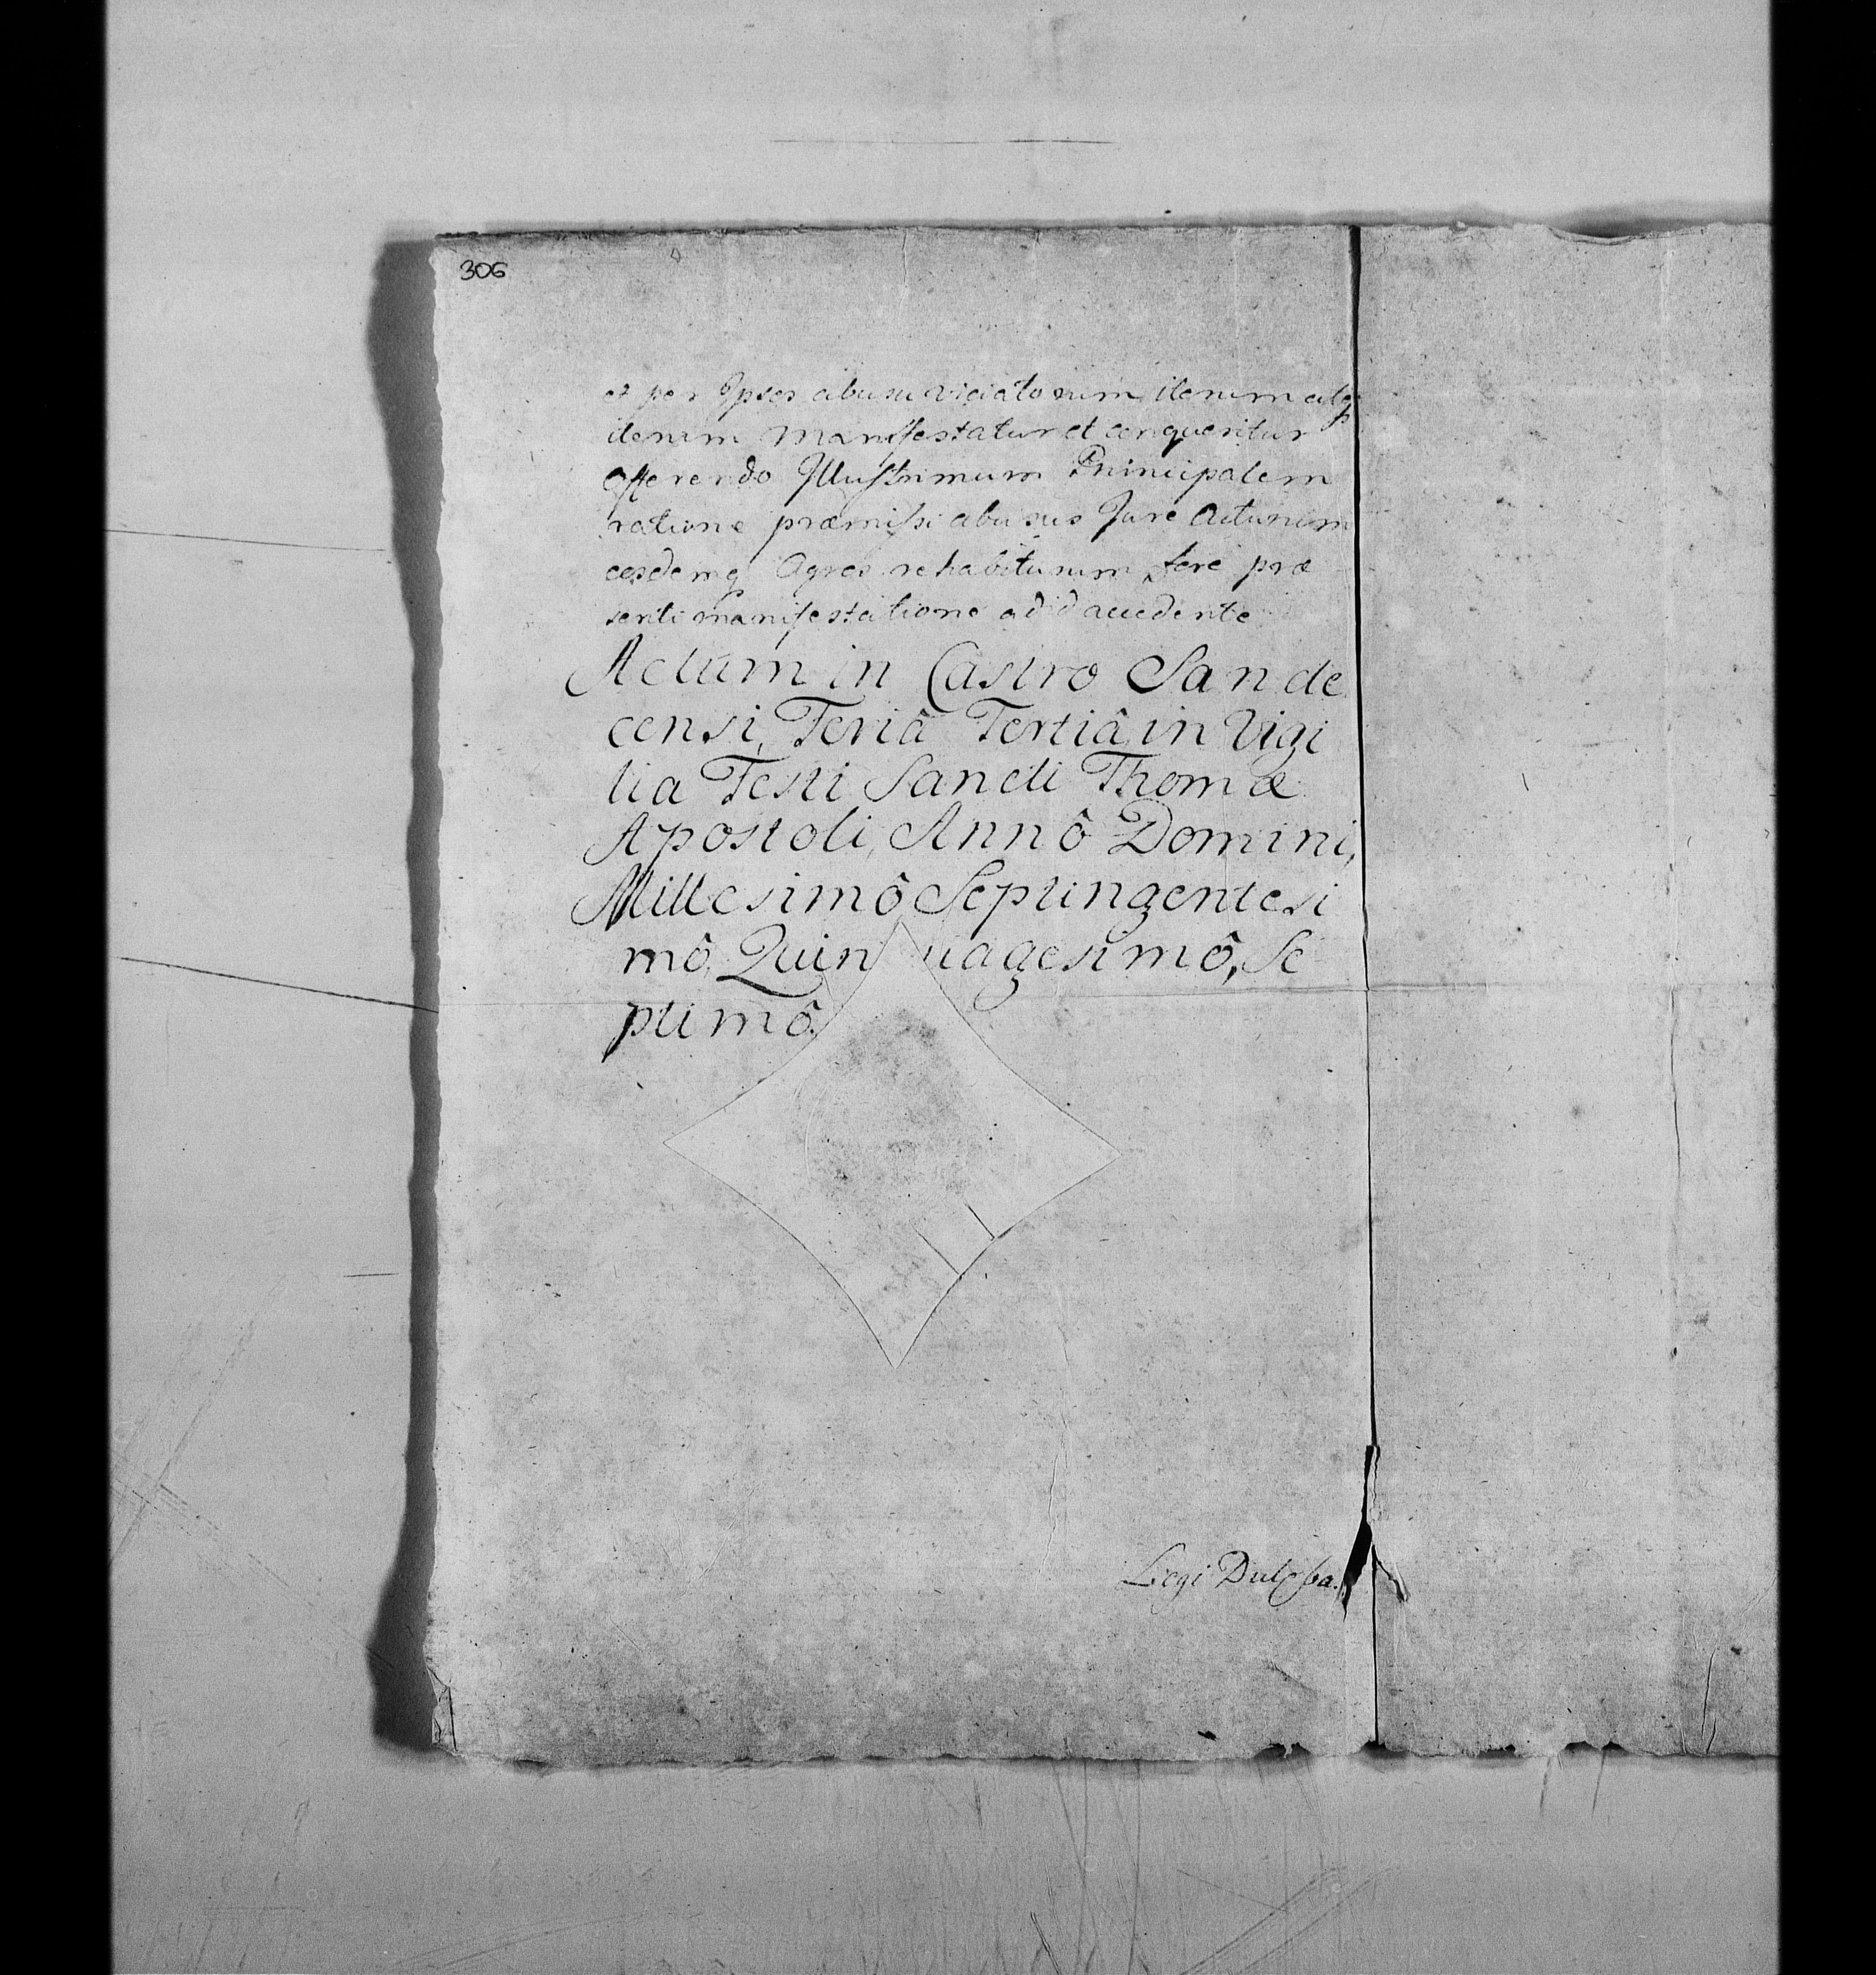 306
et per Ipsos abusu viciatorum iterum atq
iterum manifestatur et conqueritur
offerendo Illustrimum Principalem
ratione præmissi abusus Jure Acturum
eosdemq Agros rehabiturum fore præ
senti manifestatione ad id accedente
Actum in Castro Sande
censi, Feriâ Tertiâ in Vigi
lia Festi Sancti Thomæ
Apostoli, Annô Domini,
Millesimô Septingentesi
mô, Quin uagesimô, Se
ptimô.
Legi